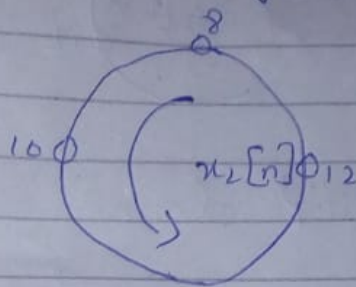 8
10 x₂[n] 12